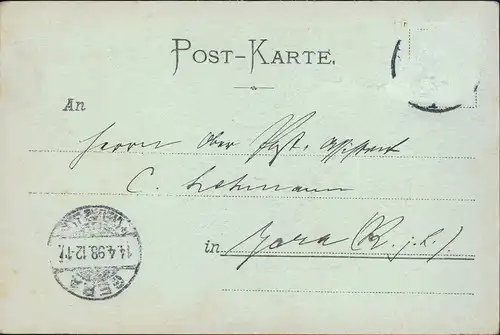 POST-KARTE.
An
Herrn Ober Post. Assistent
C. Lehmann
in Gera (R. j. L.).
GERA
14.4.98.12-1